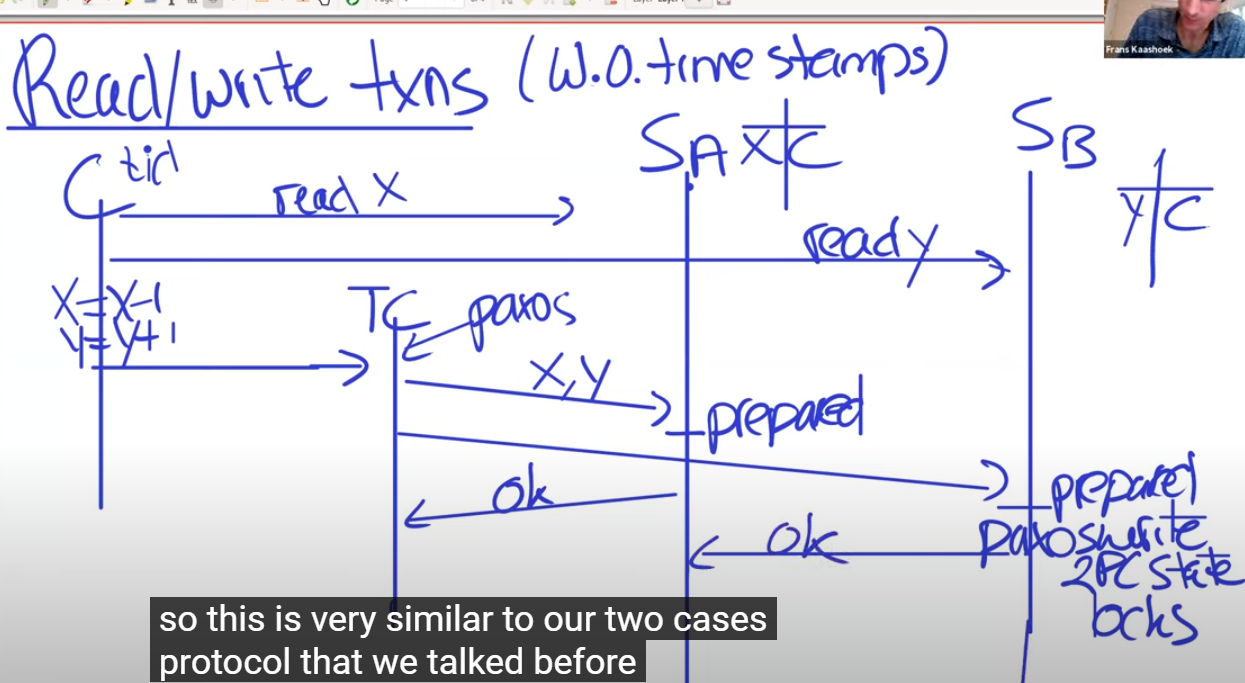 Frans Kaashoek
Read/write txns (W.O. timestamps)
C tid
SA X C
SB
Y C
read X
read y
X=X-1
y=y+1
TC
paxos
X,Y
prepared
prepared
Ok
Ok
paxos write
2PC state
locks
so this is very similar to our two cases
protocol that we talked before